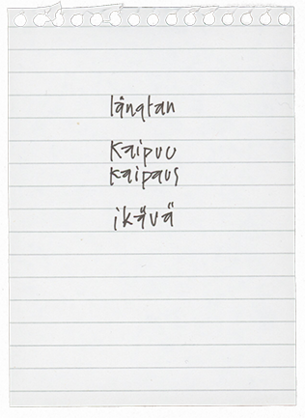 längtan
kaipuu
kaipaus
ikävä